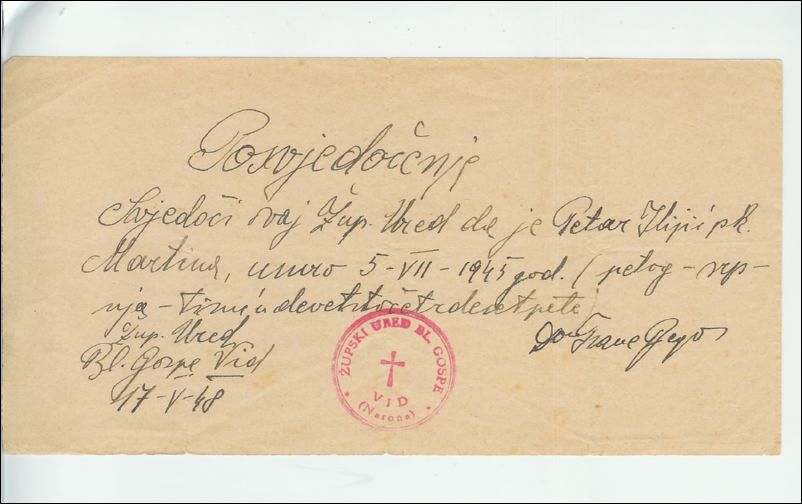 Posvjedočenje
Svjedoči ovaj Žup. Ured da je Petar Ilijić pk.
Martina, umro 5-VII-1945 god. (petog - srp-
nja -
Žup. Ured
Bl. Gospe Vid
17-V-48
Don Frane
ŽUPSKI URED BL. GOSPE
VID
(Narona)